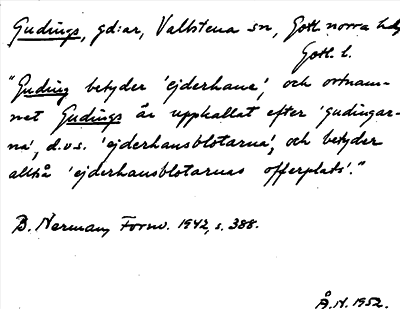 Gudings, gd:ar, Vallstena sn, Gotl. norra hd,
Gotl. l.
"Guding betyder 'ejderhane', och ortnam-
net Gudings är uppkallat efter 'gudingar-
na', d.v.s. 'ejderhansblotarna', och betyder
alltså 'ejderhansblotarnas offerplats'."
B. Nerman, Fornv. 1942, s. 388.
Å.H. 1952.